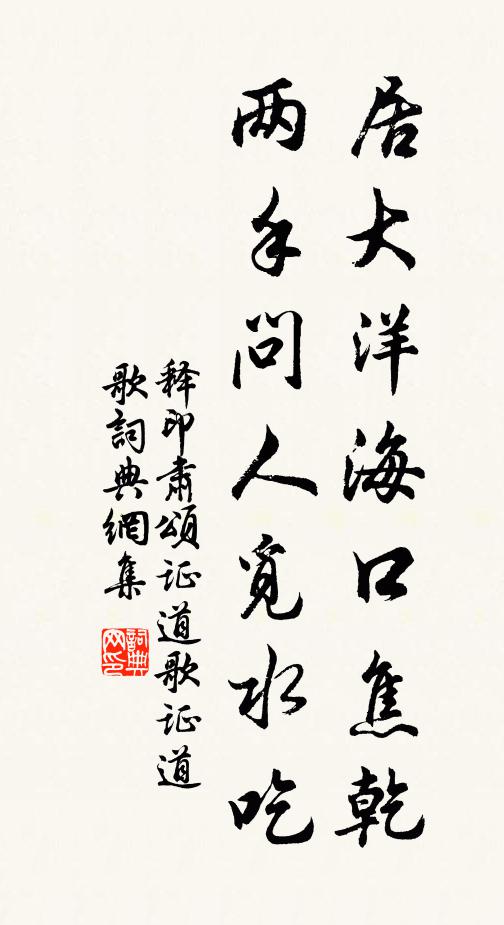 居大洋海口焦乾
两手问人觅水吃
释印肃颂证道歌证道
歌詞典網集
詞典网印